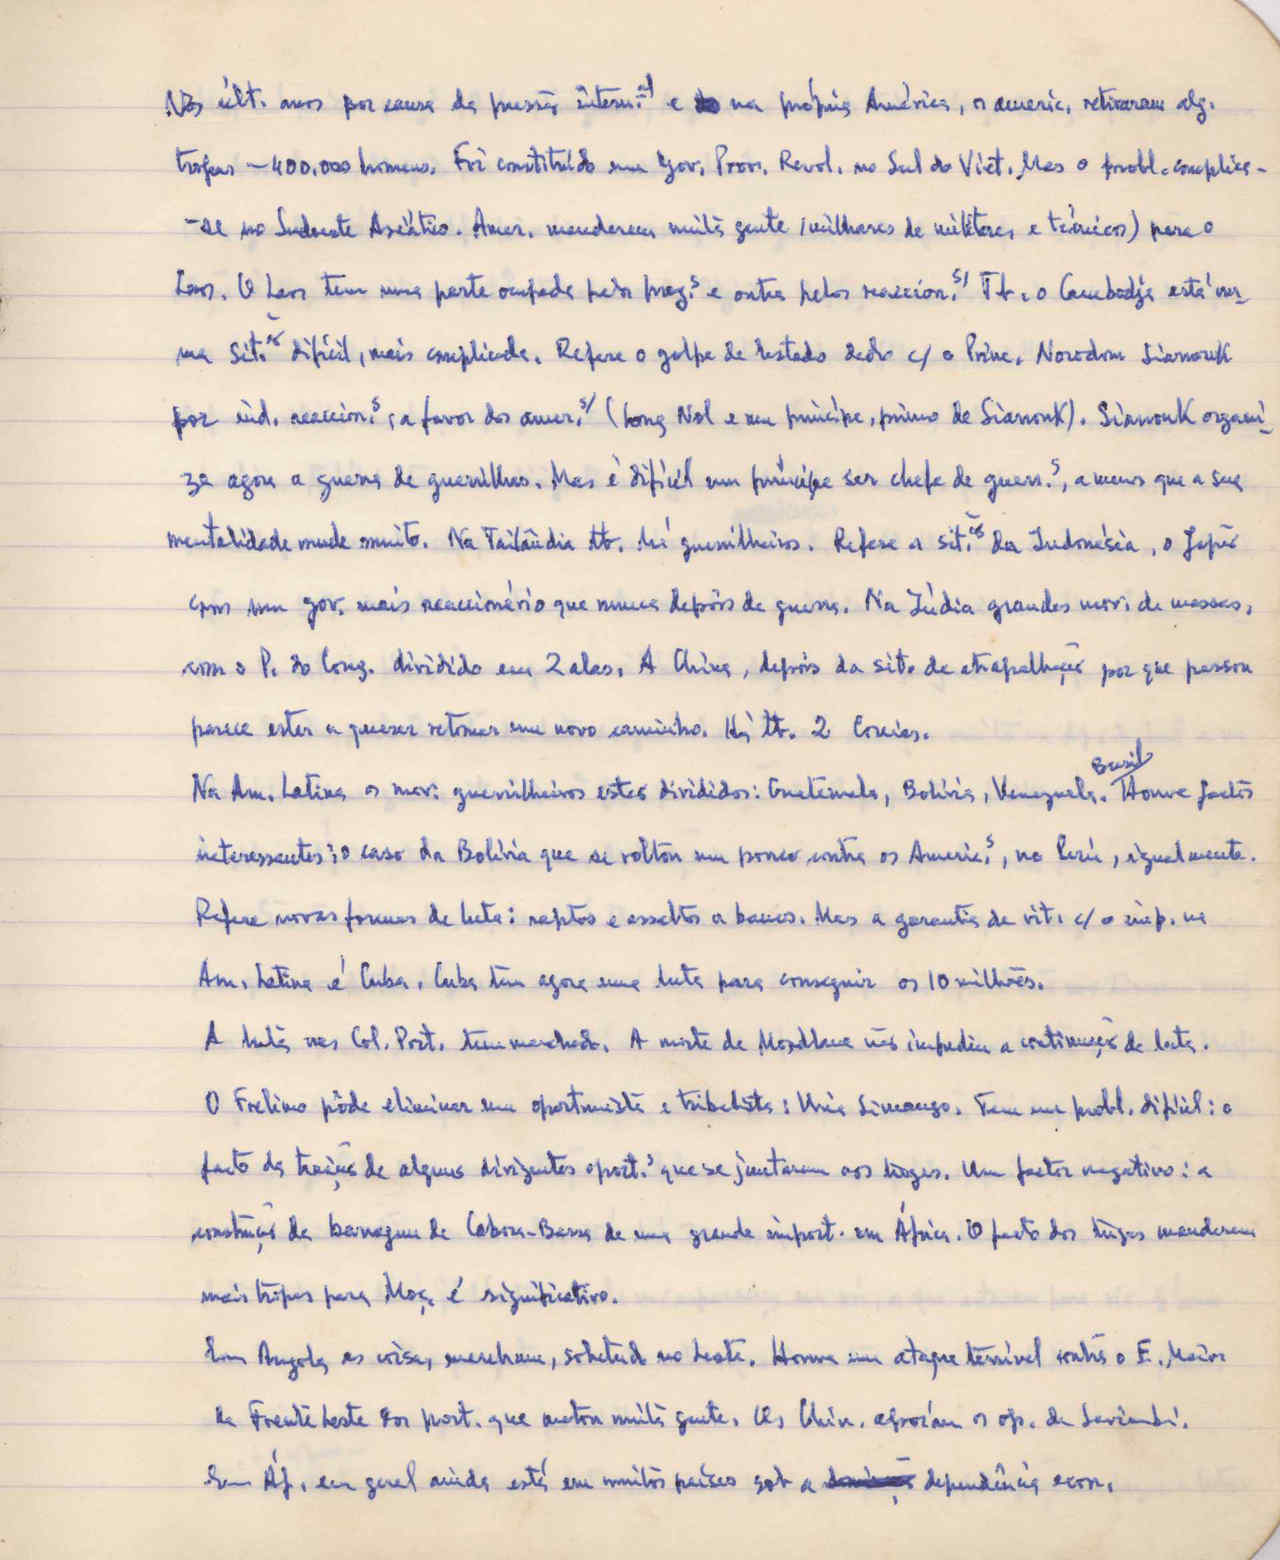 Nos últ. anos por causa da pressão intern.al e na própria América, os americ. retiraram alg.
tropas – 400.000 homens. Foi constituído um Gov. Prov. Revol. no Sul do Viet. Mas o probl. complica-
-se no Sudeste Asiático. Amer. mandaram muita gente (milhares de militares e técnicos) para o
Laos. O Laos tem uma parte ocupada pelos prog.s e outra pelos reaccion.s/ Tb. o Cambodja está nu-
ma Sit.ão difícil, mais complicada. Refere o golpe de Estado dado c/ o Prínc. Norodom Sianouk
por ind. reaccion.s, a favor dos amer.s/ (Long Nol e um príncipe, primo de Sianouk). Sianouk organi-
za agora a guerra de guerrilhas. Mas é difícil um príncipe ser chefe de guerr.s, a menos que a sua
mentalidade mude muito. Na Tailândia tb. há guerrilheiros. Refere a sit.ão da Indonésia, o Japão
com um gov. mais reaccionário que nunca depois da guerra. Na Índia grandes mov. de massas,
com o P. do Cong. dividido em 2 alas. A China, depois da sit. de atrapalhação por que passou
parece estar a querer retomar um novo caminho. Há tb. 2 Coreias.
Na Am. Latina os mov. guerrilheiros estão divididos: Guatemala, Bolívia, Venezuela. Brasil Houve factos
interessantes: o caso da Bolívia que se voltou um pouco contra os Americ.s, no Perú, igualmente.
Refere novas formas de luta: raptos e assaltos a bancos. Mas a garantia de vit. c/ o imp. na
Am. Latina é Cuba. Cuba tem agora uma luta para conseguir os 10 milhões.
A luta nas Col. Port. tem marchado. A morte de Mondlane não impediu a continuação da luta.
O Frelimo pôde eliminar um oportunista e tribalista: Uria Simango. Tem um probl. difícil: o
facto da traição de alguns dirigentes oport.s que se juntaram aos tugas. Um factor negativo: a
construção da barragem de Cabora-Bassa de uma grande import. em África. O facto dos tugas mandarem
mais tropas para Moç. é significativo.
Em Angola as coisas marcham, sobretudo no Leste. Houve um ataque terrível contra o E. Maior
da Frente Leste dos port. que matou muita gente. Os Chin. apoiam os op. de Savimbi.
Em Áf. em geral ainda está em muitos países sob a dependência econ.